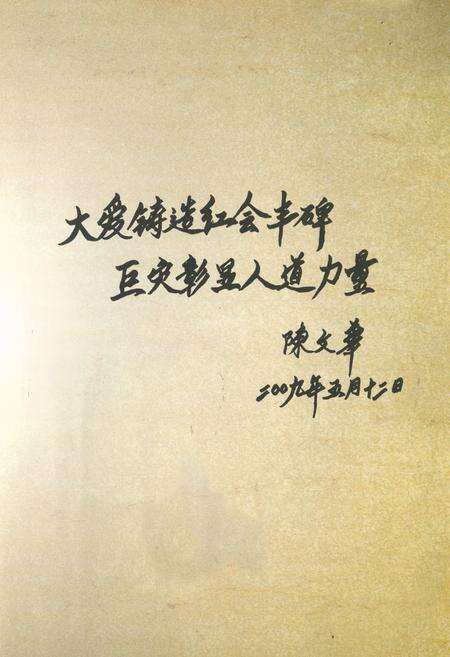 大爱铸造红会丰碑
巨灾彰显人道力量
陳文華
二00九年五月十二日